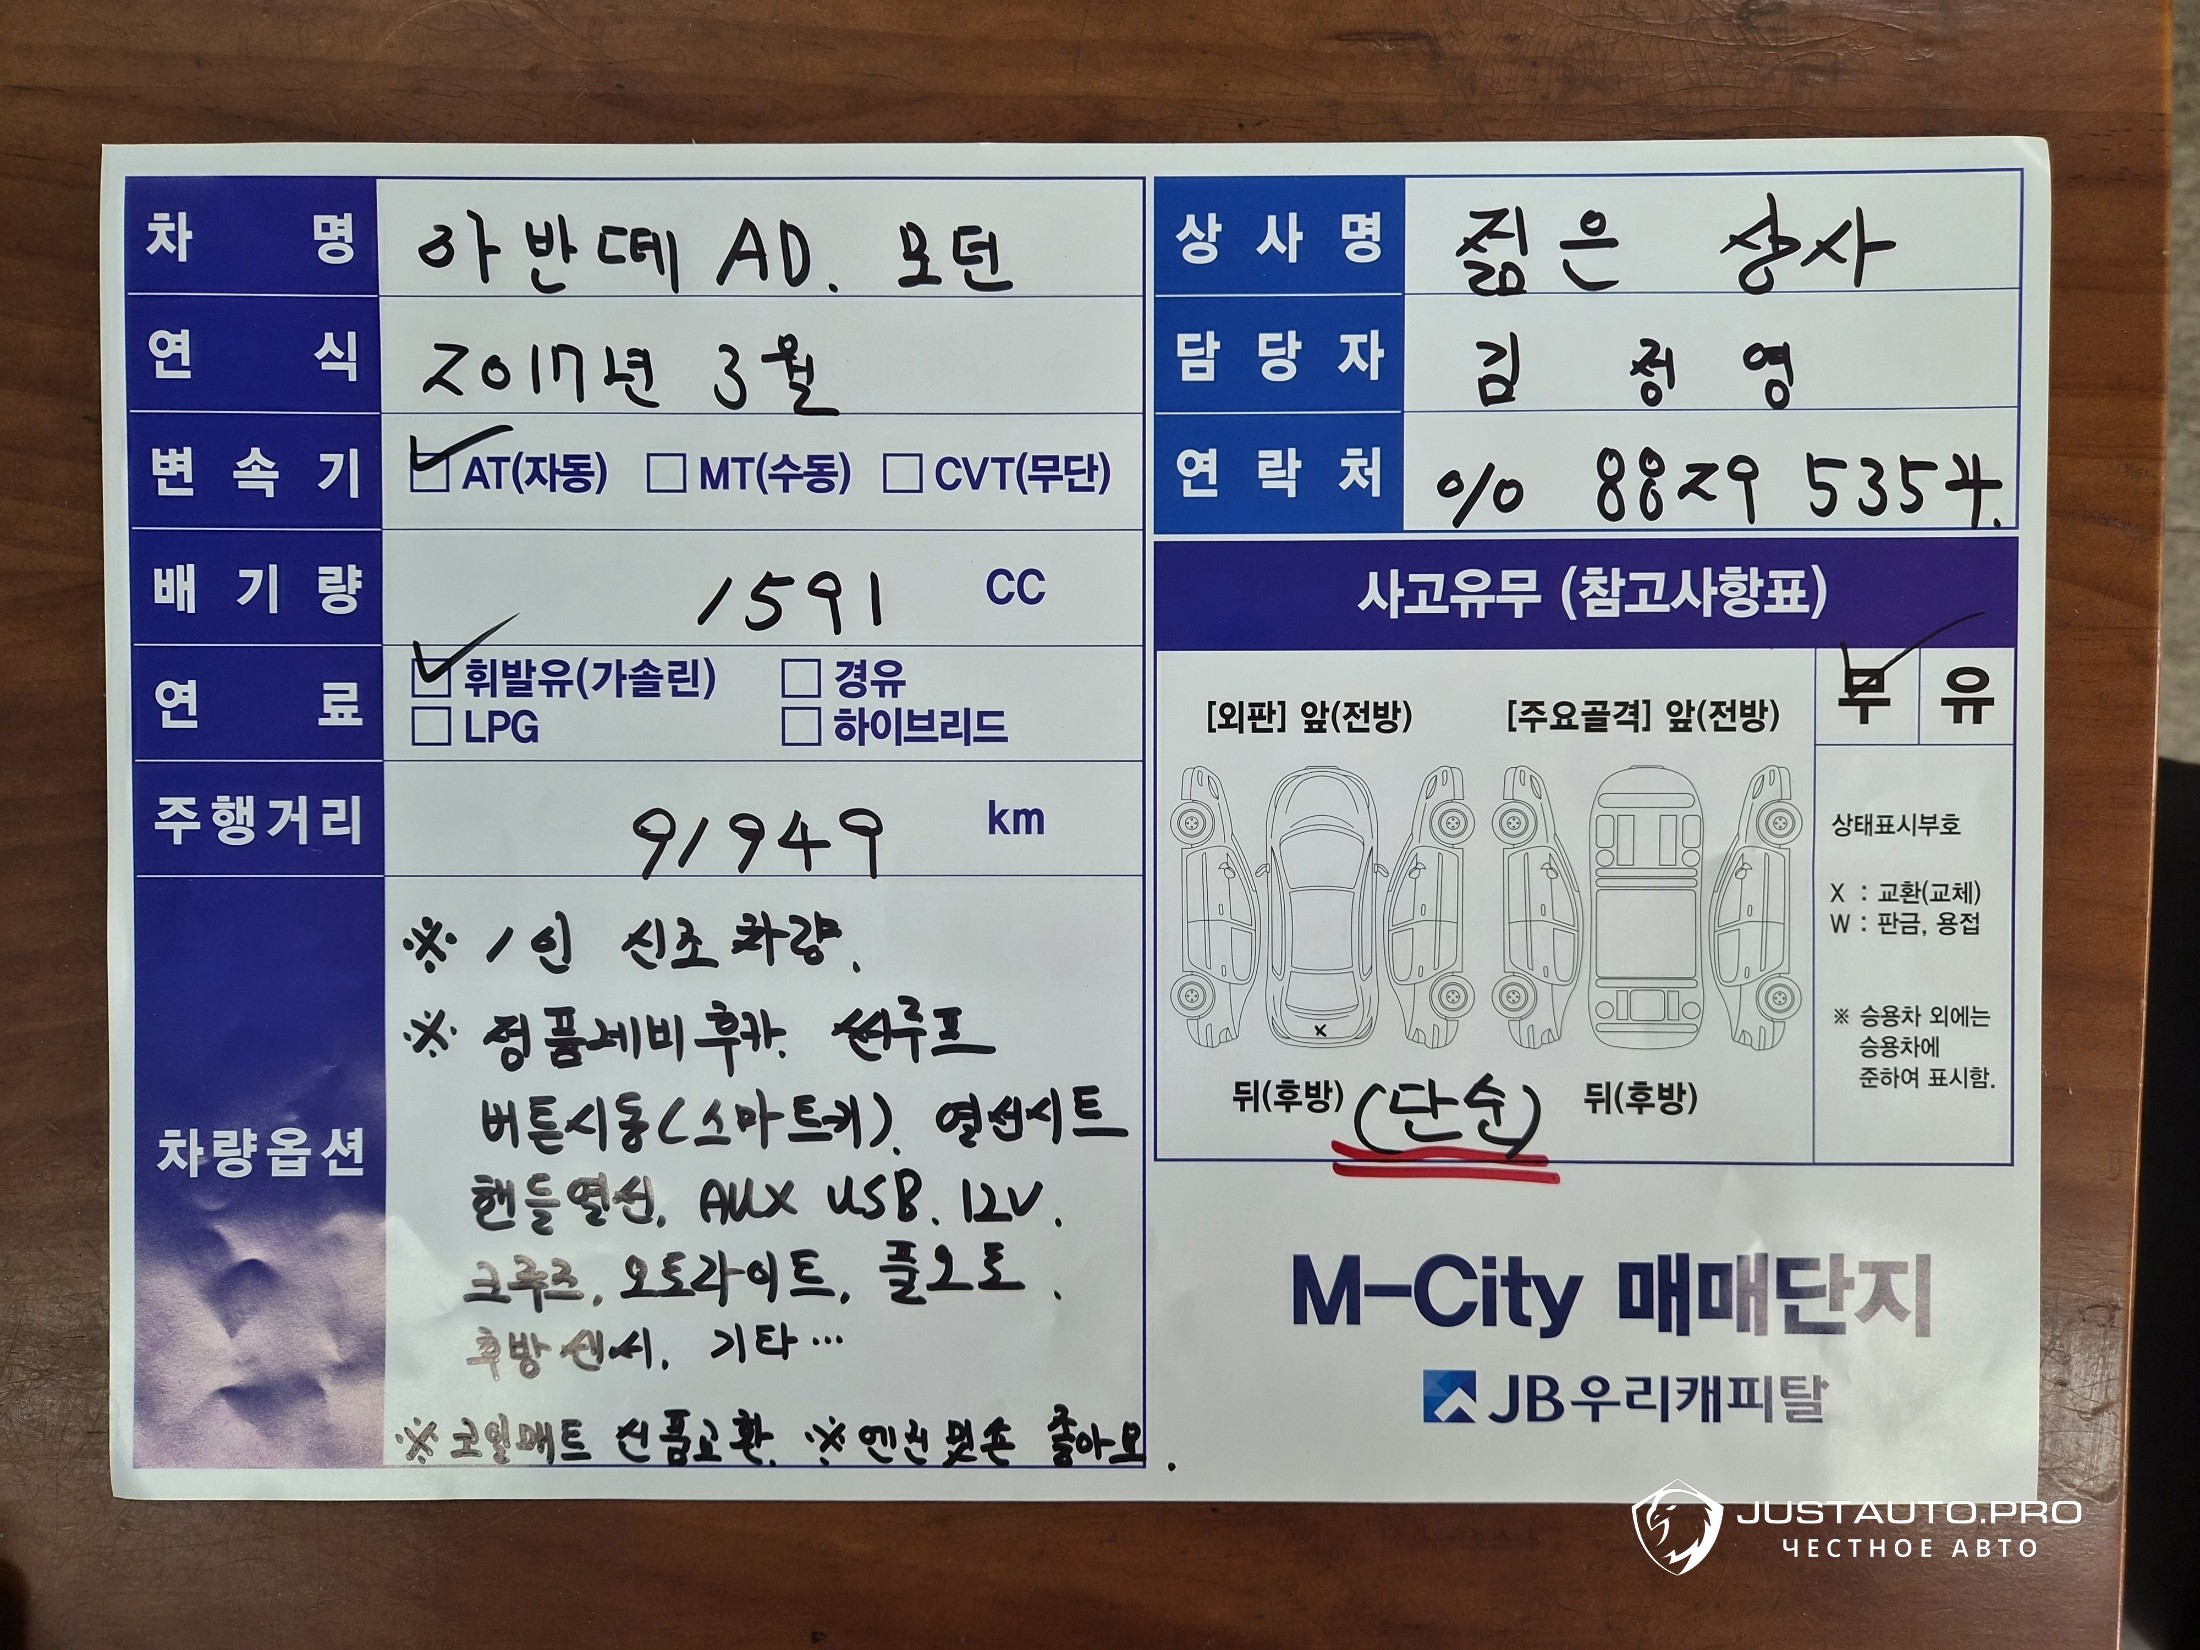 차 명 아반떼 AD. 모던
연 식 2017년 3월
변 속 기 AT(자동) MT(수동) CVT(무단)
배 기 량 1591 CC
연 료 휘발유(가솔린) 경유
LPG 하이브리드
주행거리 91949 km
차량옵션
※ 1인 신조차량.
※ 정품네비후카. 썬루프
버튼시동(스마트키). 열선시트
핸들열선, AUX USB. 12V.
크루즈, 오토라이트, 풀오토.
후방센서, 기타…
※코일매트 신품교환. ※엔진 밋숀 좋아요.
상 사 명 젊은 상사
담 당 자 김 정 영
연 락 처 010 8829 5354.
사고유무 (참고사항표)
[외판] 앞(전방) [주요골격] 앞(전방) 무 유
상태표시부호
X : 교환(교체)
W : 판금, 용접
※ 승용차 외에는
승용차에
준하여 표시함.
x
뒤(후방) (단순) 뒤(후방)
M-City 매매단지
JB우리캐피탈
JUSTAUTO.PRO
ЧЕСТНОЕ АВТО